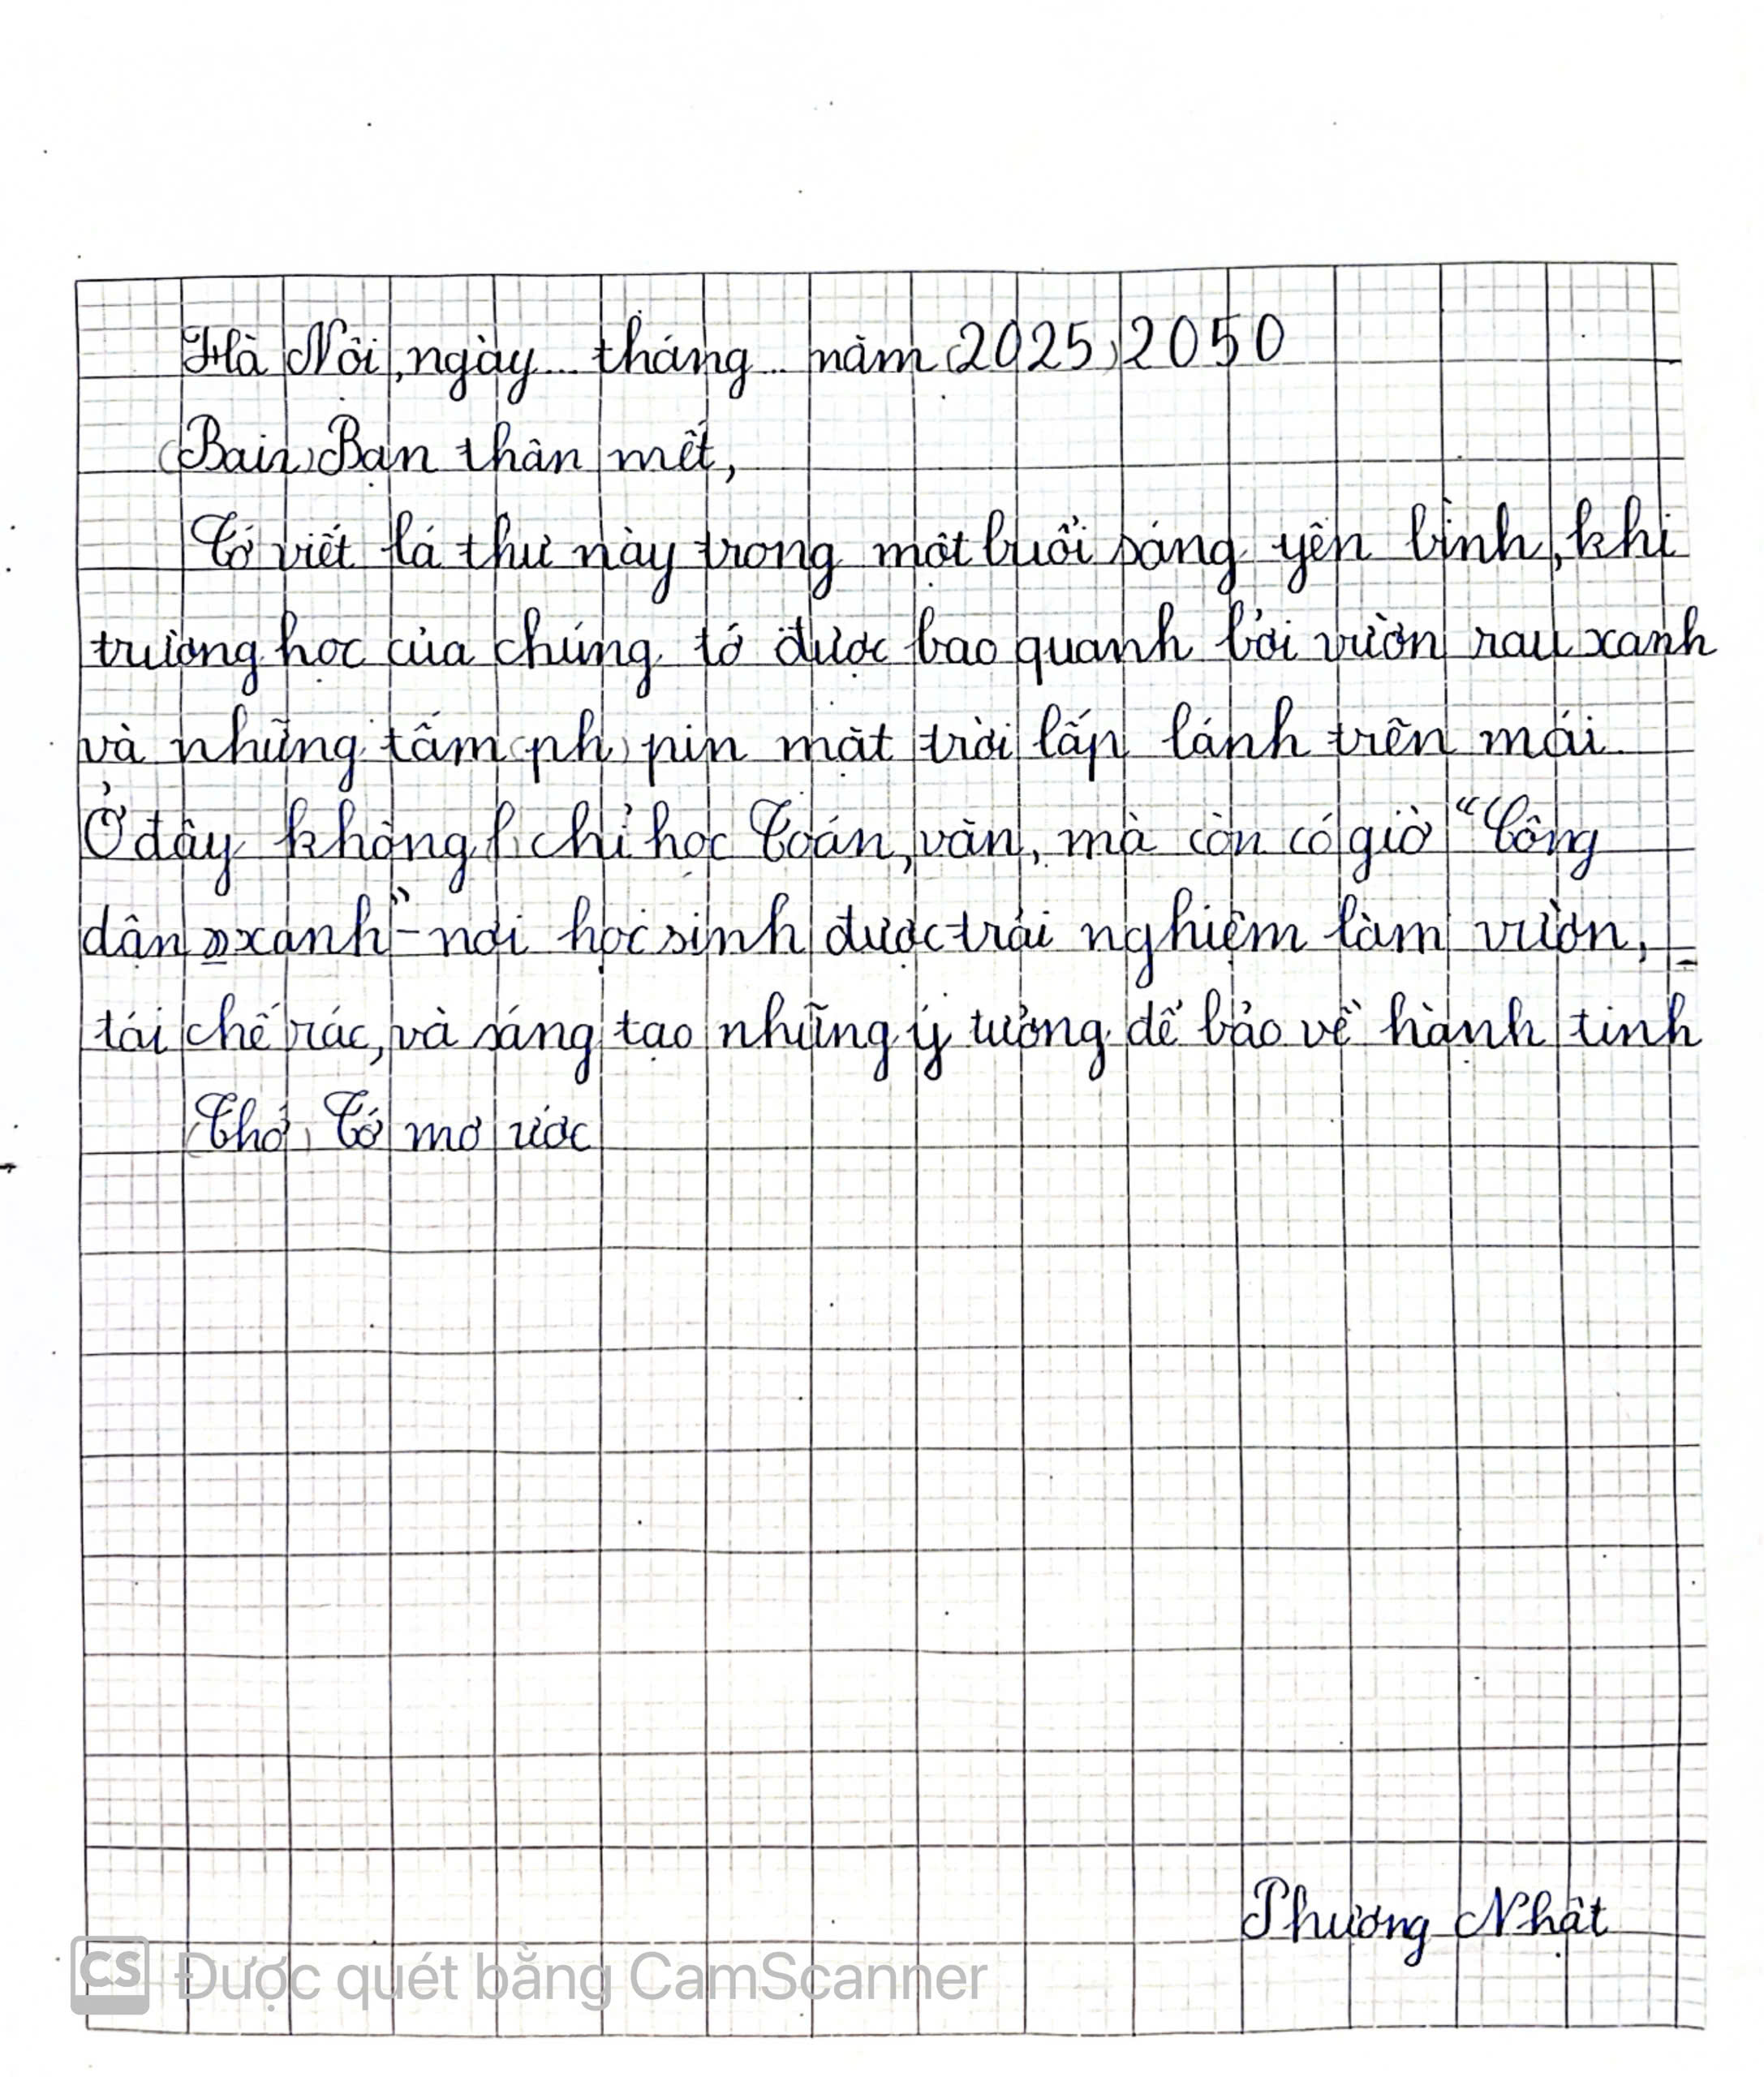 Hà Nội, ngày... tháng... năm (2025) 2050
(Bain) Bạn thân mết,
Tớ viết lá thư này trong một buổi sáng yên bình, khi
trường học của chúng tớ được bao quanh bởi vườn rau xanh
và những tấm (ph) pin mặt trời lấp lánh trên mái.
Ở đây không chỉ học Toán, văn, mà còn có giờ "Công
dân xanh" - nơi học sinh được trải nghiệm làm vườn,
tái chế rác, và sáng tạo những ý tưởng để bảo vệ hành tinh
(Thở) Tớ mơ ước
Phương Nhật
CS Được quét bằng CamScanner